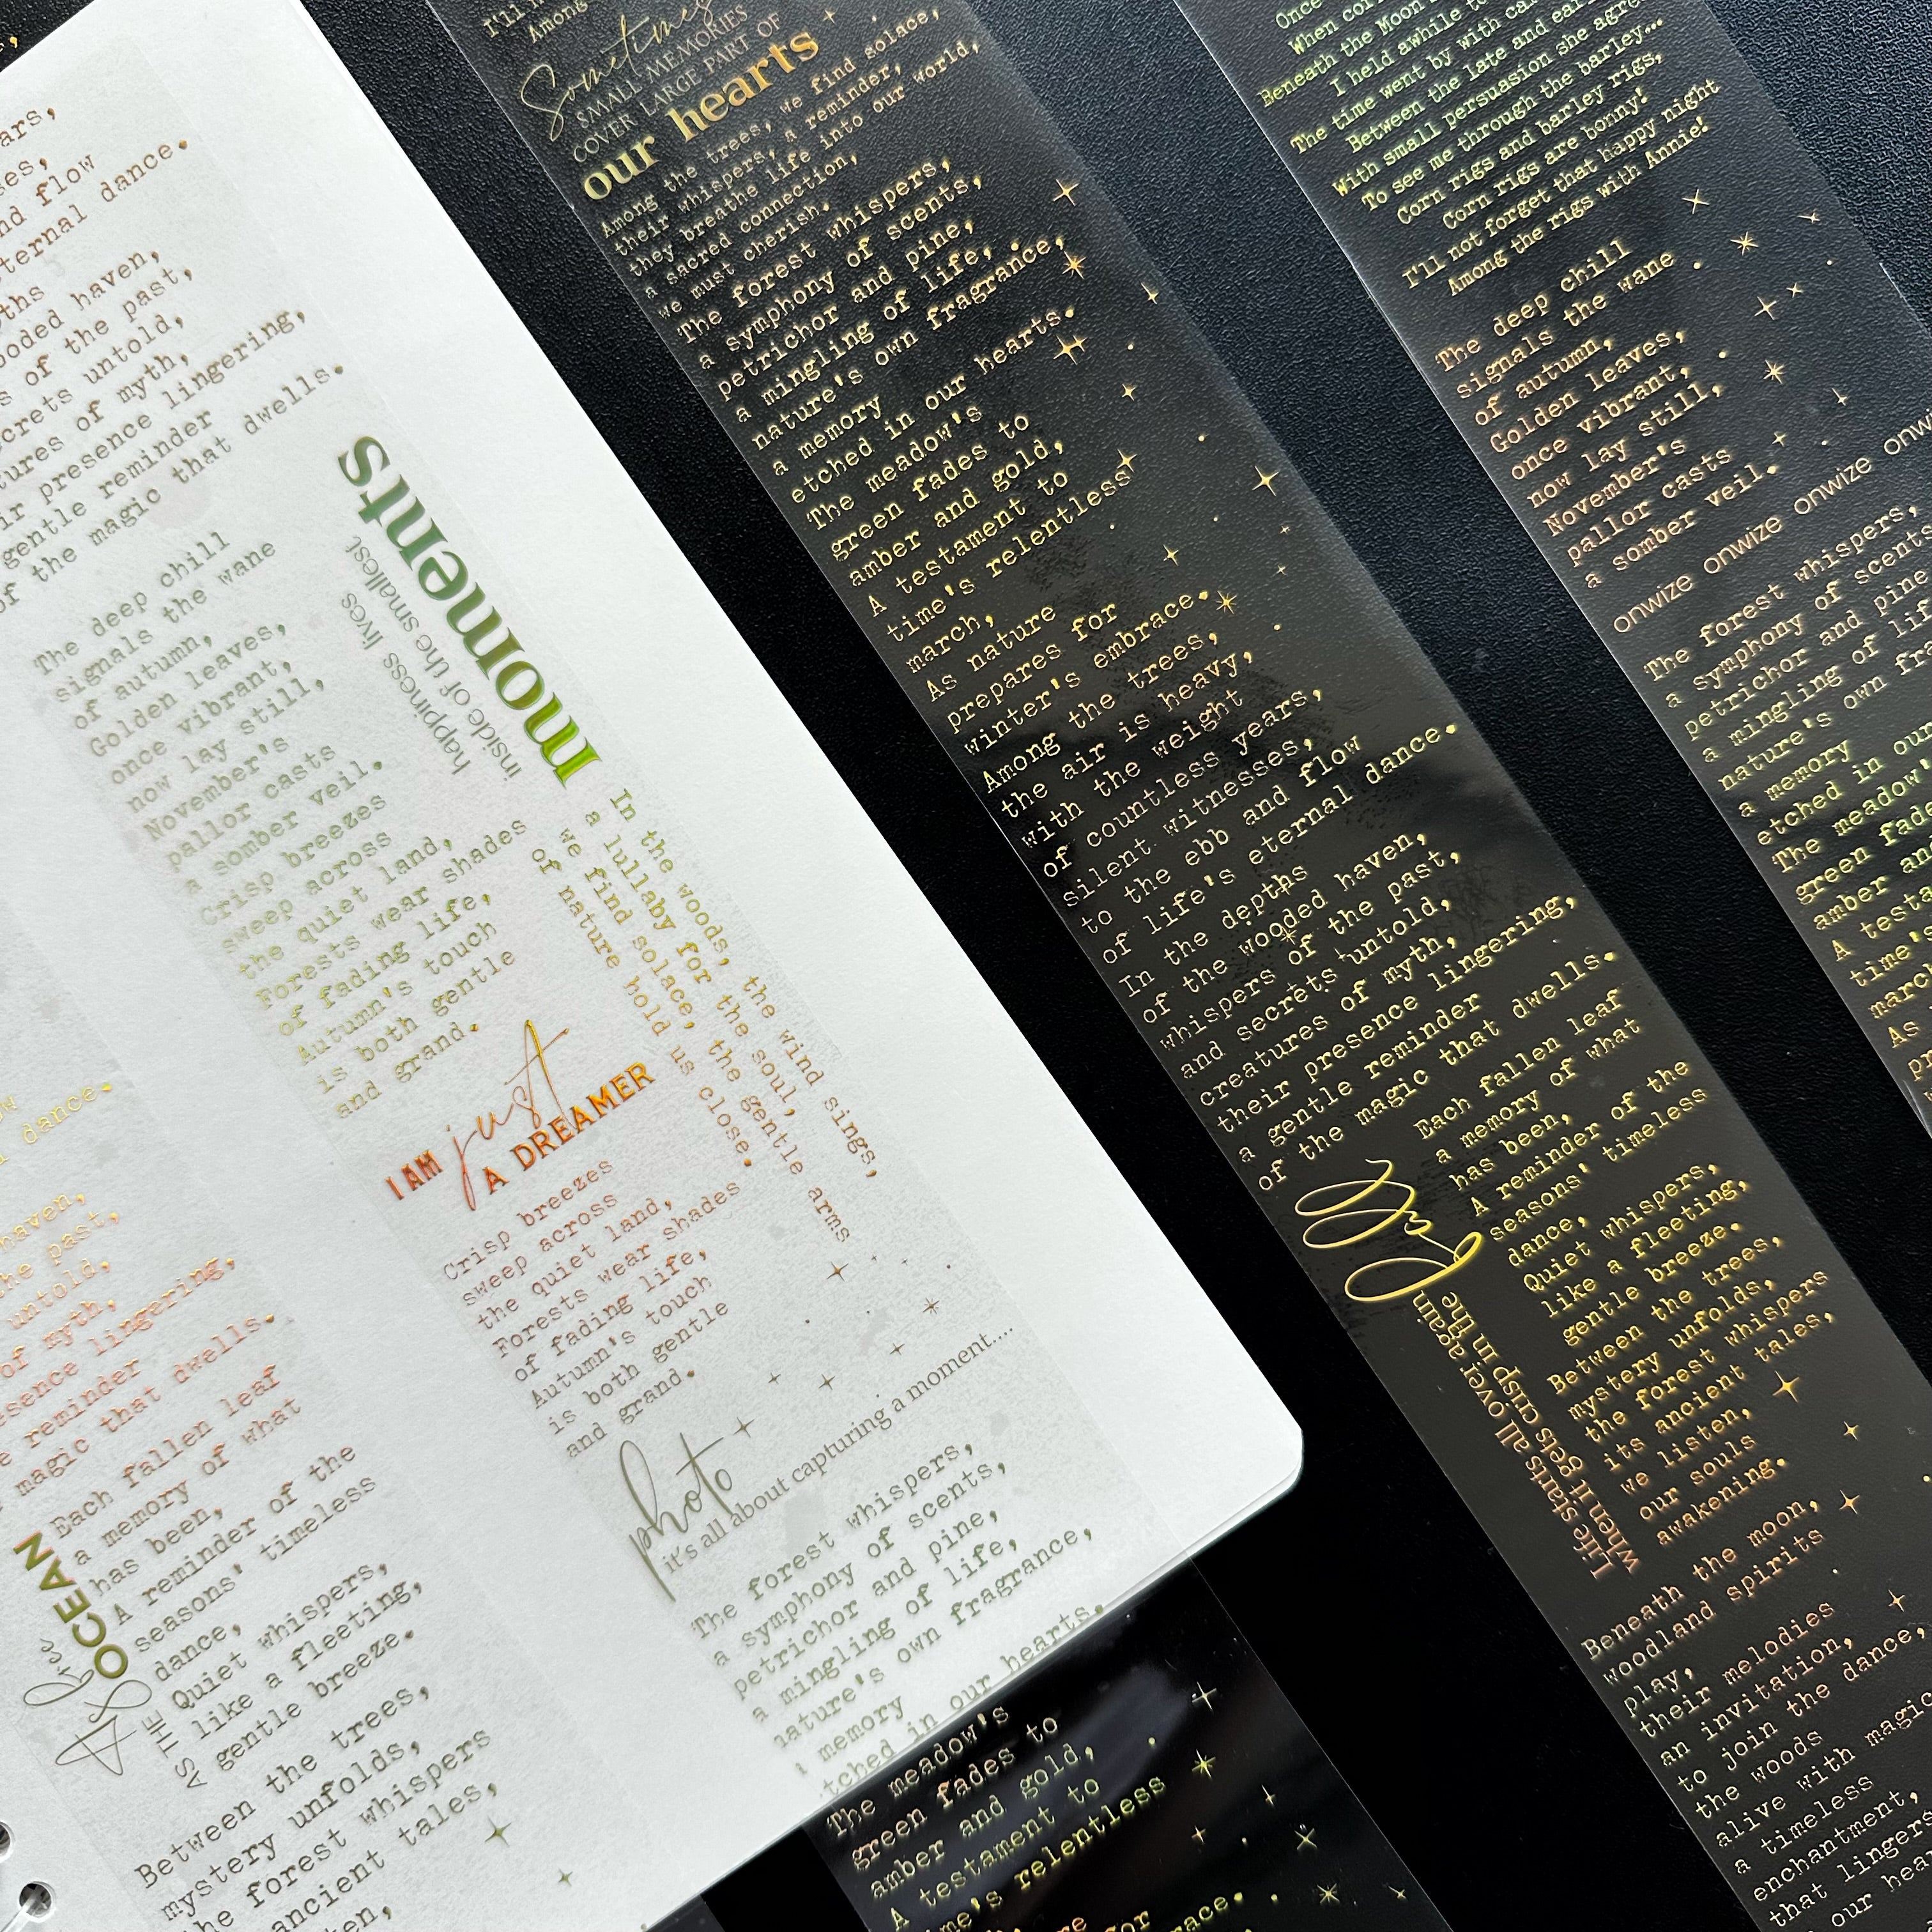 ars,
and flow
eternal dance.
haven,
of the past,
secrets untold,
of myth,
presence lingering,
gentle reminder
of the magic that dwells.
The deep chill
signals the wane
of autumn,
Golden leaves,
once vibrant,
now lay still,
November's
pallor casts
a somber veil.
Crisp breezes
sweep across
the quiet land,
Forests wear shades
of fading life,
Autumn's touch
is both gentle
and grand.
happiness lives
inside of the smallest
moments
In the woods, the wind sings,
a lullaby for the soul,
we find solace, the gentle arms
of nature hold us close.
I AM just
A DREAMER
Crisp breezes
sweep across
the quiet land,
Forests wear shades
of fading life,
Autumn's touch
is both gentle
and grand.
photo
it's all about capturing a moment....
The forest whispers,
a symphony of scents,
petrichor and pine,
a mingling of life,
nature's own fragrance,
memory
etched in our hearts.
The meadow's
green fades to
amber and gold,
A testament to
time's relentless
dance.
haven,
the past,
untold,
of myth,
presence lingering,
reminder
magic that dwells.
AS THE
OCEAN
Each fallen leaf
a memory of what
has been,
A reminder of the
seasons' timeless
dance,
Quiet whispers,
like a fleeting,
gentle breeze.
Between the trees,
mystery unfolds,
the forest whispers
ancient tales,
I'll
Among
Sometimes
SMALL MEMORIES
COVER LARGE PART OF
our hearts
Among the trees, we find solace,
their whispers, a reminder,
they breathe life into our world,
a sacred connection,
we must cherish.
The forest whispers,
a symphony of scents,
petrichor and pine,
a mingling of life,
nature's own fragrance,
a memory
etched in our hearts.
The meadow's
green fades to
amber and gold,
A testament to
time's relentless
march,
As nature
prepares for
winter's embrace.
Among the trees,
the air is heavy,
with the weight
of countless years,
silent witnesses,
to the ebb and flow
of life's eternal dance.
In the depths
of the wooded haven,
whispers of the past,
and secrets untold,
creatures of myth,
their presence lingering,
a gentle reminder
of the magic that dwells.
Life starts all over again
when it gets crisp in the
fall
Each fallen leaf
a memory of what
has been,
A reminder of the
seasons' timeless
dance,
Quiet whispers,
like a fleeting,
gentle breeze.
Between the trees,
mystery unfolds,
the forest whispers
its ancient tales,
we listen,
our souls
awakening.
Beneath the moon,
woodland spirits
play,
their melodies
an invitation,
to join the dance,
the woods
alive with magic
a timeless
enchantment,
that linger
our hea
Once
When cor
Beneath the Moon
I held awhile to
The time went by with ca
Between the late and ear
With small persuasion she agre
To see me through the barley...
Corn rigs and barley rigs,
Corn rigs are bonny!
I'll not forget that happy night
Among the rigs with Annie!
The deep chill
signals the wane
of autumn,
Golden leaves,
once vibrant,
now lay still,
November's
pallor casts
a somber veil.
onwize onwize onwize onwize onw
The forest whispers,
a symphony of scents
petrichor and pine
a mingling of lif
nature's own fra
a memory
etched in our
The meadow'
green fade
amber an
A testa
time's
march
As
pr